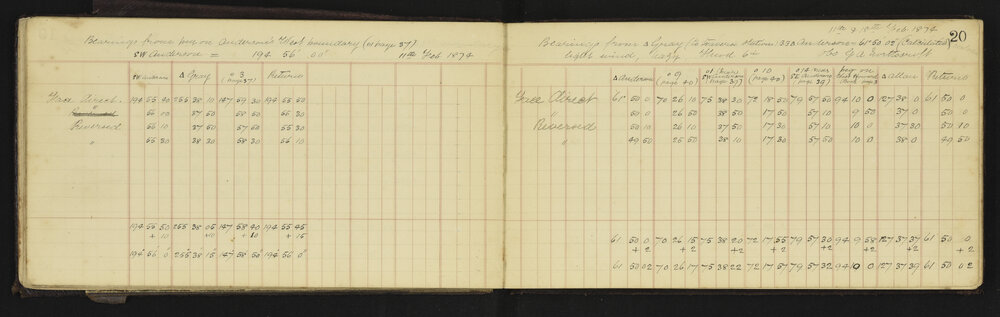 Bearings from peg on Anderson's West boundary (on page 37)
SW Anderson = 194 56 00" 11th Feb 1874
SW Anderson Δ Gray o 3 (page 37) Returno
Face direct. 194 55 40 255 38 10 147 59 30 194 55 50
55 50 37 50 58 50 55 30
Reversed 55 10 37 50 57 50 55 30
" 55 30 38 30 58 30 55 10
194 55 50 255 38 05 147 58 40 194 55 45
+ 10 +10 + 10 + 15
194 56 0 255 38 15 147 58 50 194 56 0
11th & 12th Feb 1874
20
Bearings from Δ Gray Anderson 61° 50 02" (Calculated)
light wind, hazy
Δ Anderson o 9 (page 40) o 10 (page 40) Δ Allan Returno
Face Direct 61 50 0 70 26 10 75 38 30 72 18 50 79 57 50 94 10 0 127 38 0 61 50 0
" 50 0 26 50 38 50 17 50 57 10 9 50 37 0 50 0
Reversed 50 10 26 10 37 50 17 30 57 10 10 0 37 30 50 10
" 49 50 25 50 38 10 17 30 57 50 10 0 38 0 49 50
61 50 0 70 26 15 75 38 20 72 17 55 79 57 30 94 9 58 127 37 37 61 50 0
+2 +2 +2 +2 +2 +2 +2 + 2
61 50 02 70 26 17 75 38 22 72 17 57 79 57 32 94 10 0 127 37 39 61 50 02